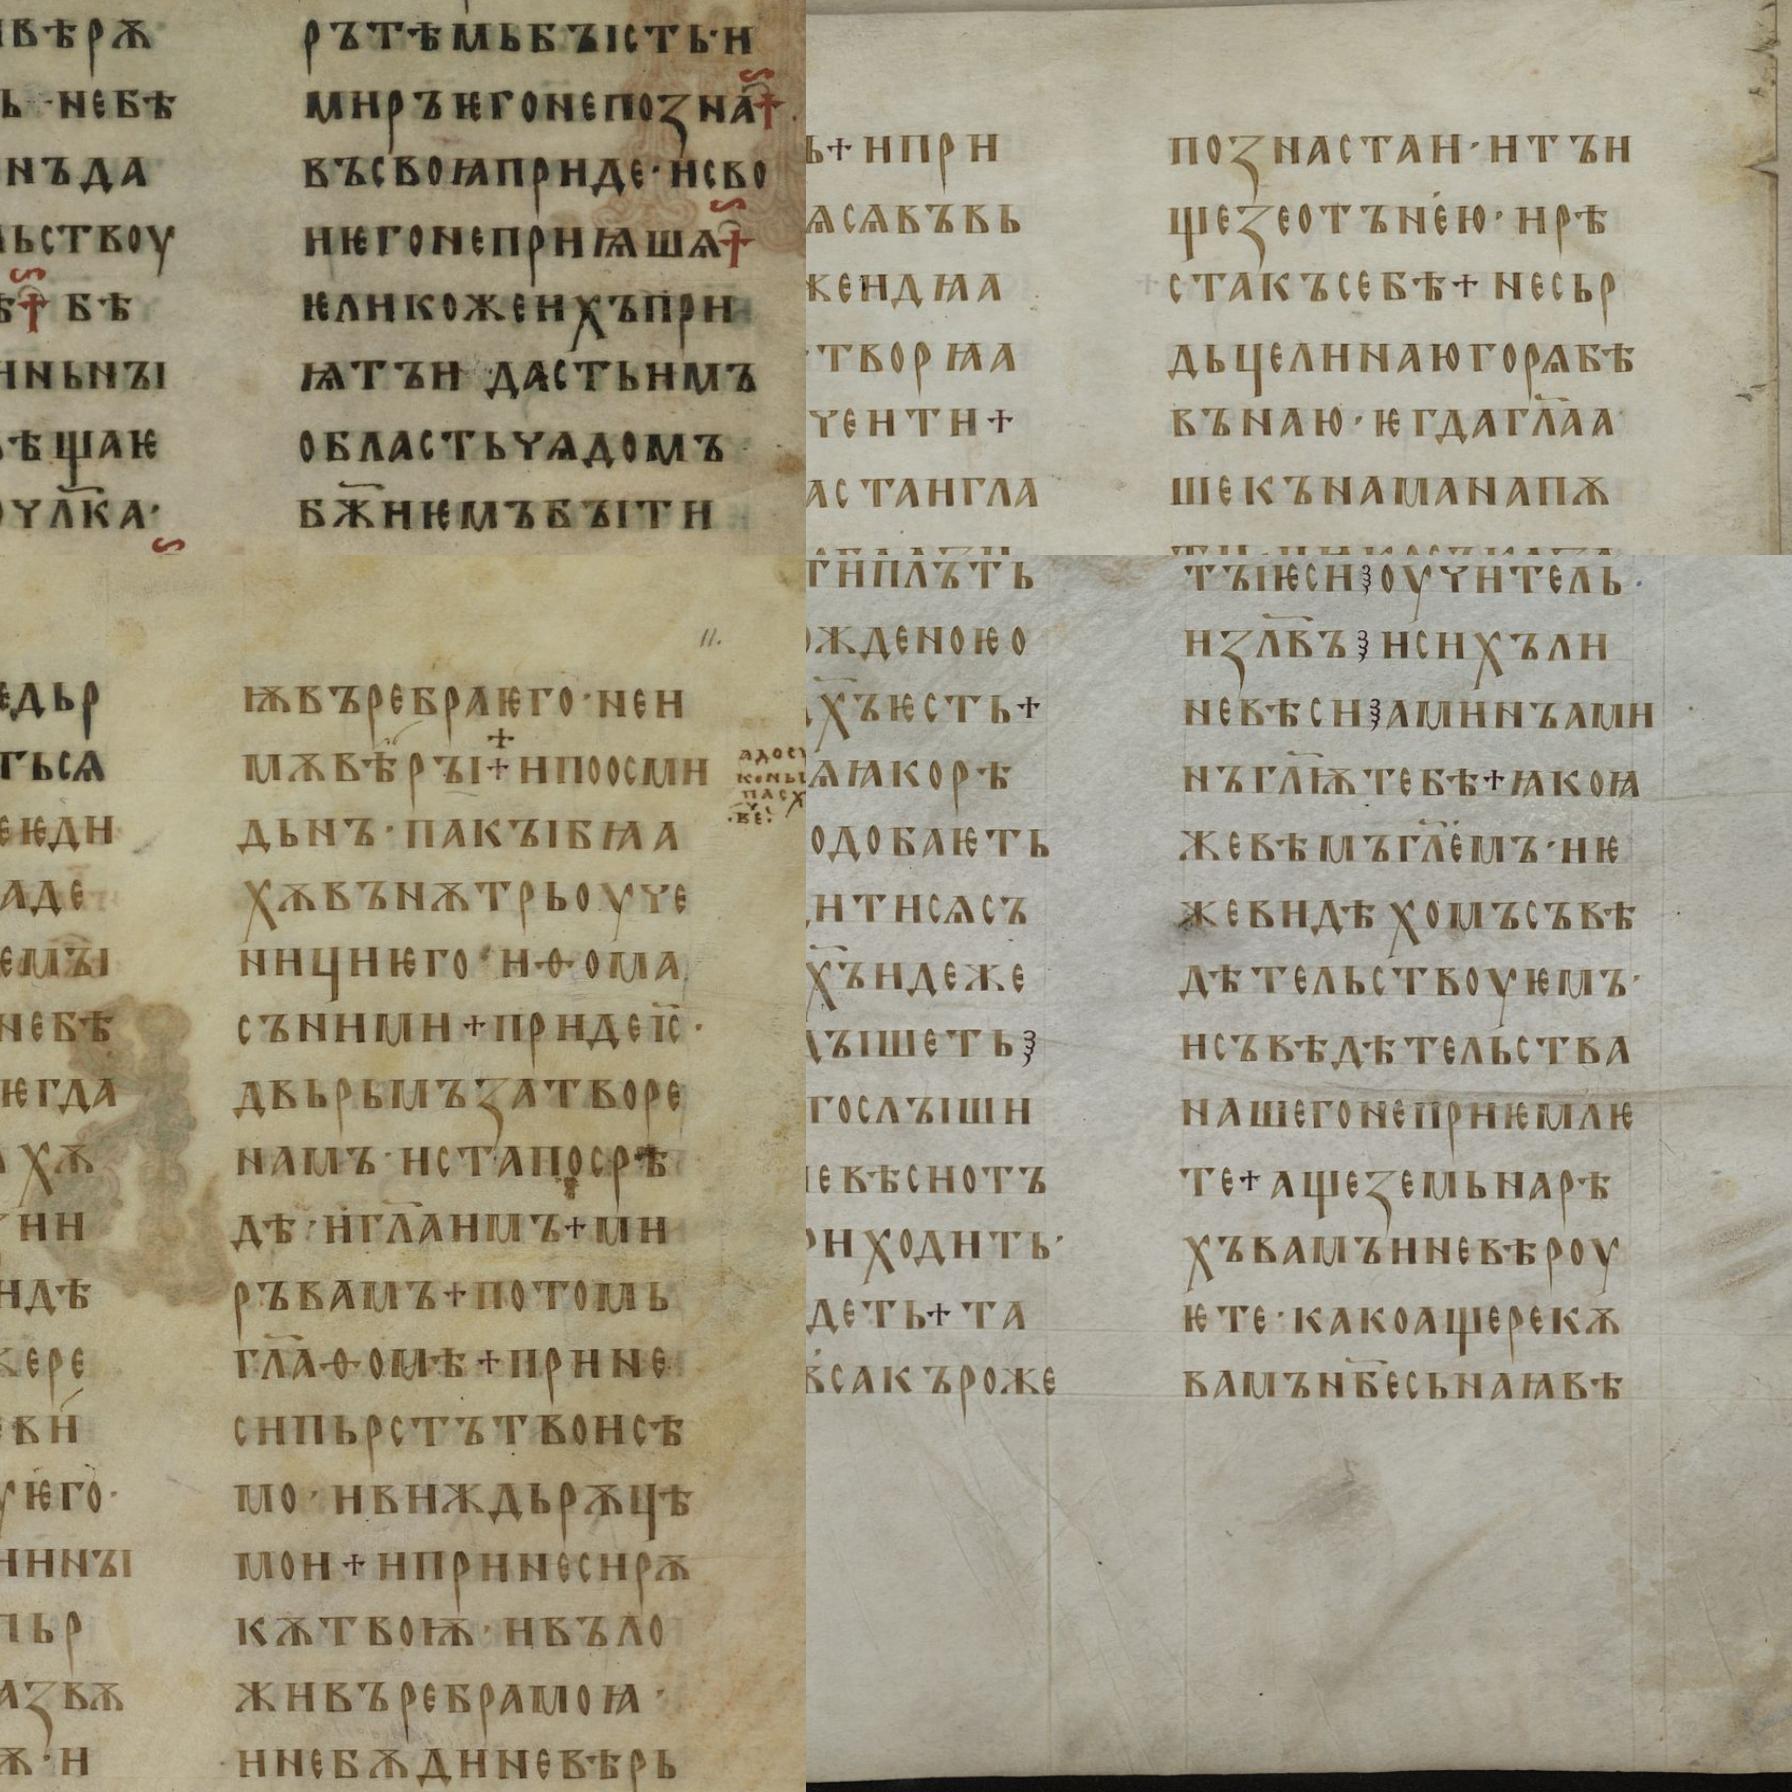 вѣрѫ
ь·небѣ
нъда
льствоу
ѣ† бѣ
ньнꙑ
ѣщаѥ
очл҃ка·
рътѣмьбꙑсть·и
миръѥгонепозна†
въсвоꙗприде·исво
иѥгонеприѩшѧ†
ѥликожеихъпри
ѩтъи дастьимъ
областьчѧдомъ
бж҃иѥмъбꙑти
ь+ипри
ѧсѧвъвь
жеидꙗа
·творꙗа
чеити+
астаигла
познастаи·итъи
щезеотънею·ирѣ
стакъсебѣ+несьр
дьцелинаюгорѧбѣ
вънаю·ѥгдагл҃аа
шекънаманапѫ
11.
едьр
тьсѧ
еѥди
аде
емꙑ
небѣ
ѥгда
хѫ
ни
идѣ
ере
ви
уѥго·
иинꙑ
пьр
азвѫ
ѫ·и
ѭвъребраѥго·неи
мѫвѣрꙑ+ипоосми
дьнъ·пакꙑбꙗа
хѫвънѫтрьоуче
ницииѥго·иѳома
съними+придеіс҃·
двьрьмъзатворе
намъ·истапосрѣ
дѣ·игл҃аимъ+ми
ръвамъ+потомь
гл҃аѳомѣ+прине
сипьрстътвоисѣ
мо·ивиждьрѫцѣ
мои+ипринесирѫ
кѫтвоѭ·ивъло
живъребрамоꙗ·
инебѫдиневѣрь
гиплъть
жденоѥо
х҃ъѥсть+
ѧꙗкорѣ
одобаѥть
итисѧсъ
х҃ъидеже
дꙑшеть
гослꙑши
евѣсиотъ
риходить·
деть+та
всакъроже
тꙑѥсиоучитель·
из҃лвъисихъли
невѣсиаминъами
нъгл҃ѭтебѣ+ꙗкоꙗ
жевѣмъгл҃емъ·иѥ
жевидѣхомъсъвѣ
дѣтельствоуѥмъ·
исъвѣдѣтельства
нашегонеприѥмлѥ
те+ащеземьнарѣ
хъвамъиневѣроу
ѥте·какоащерекѫ
вамън҃бесьнаꙗвѣ